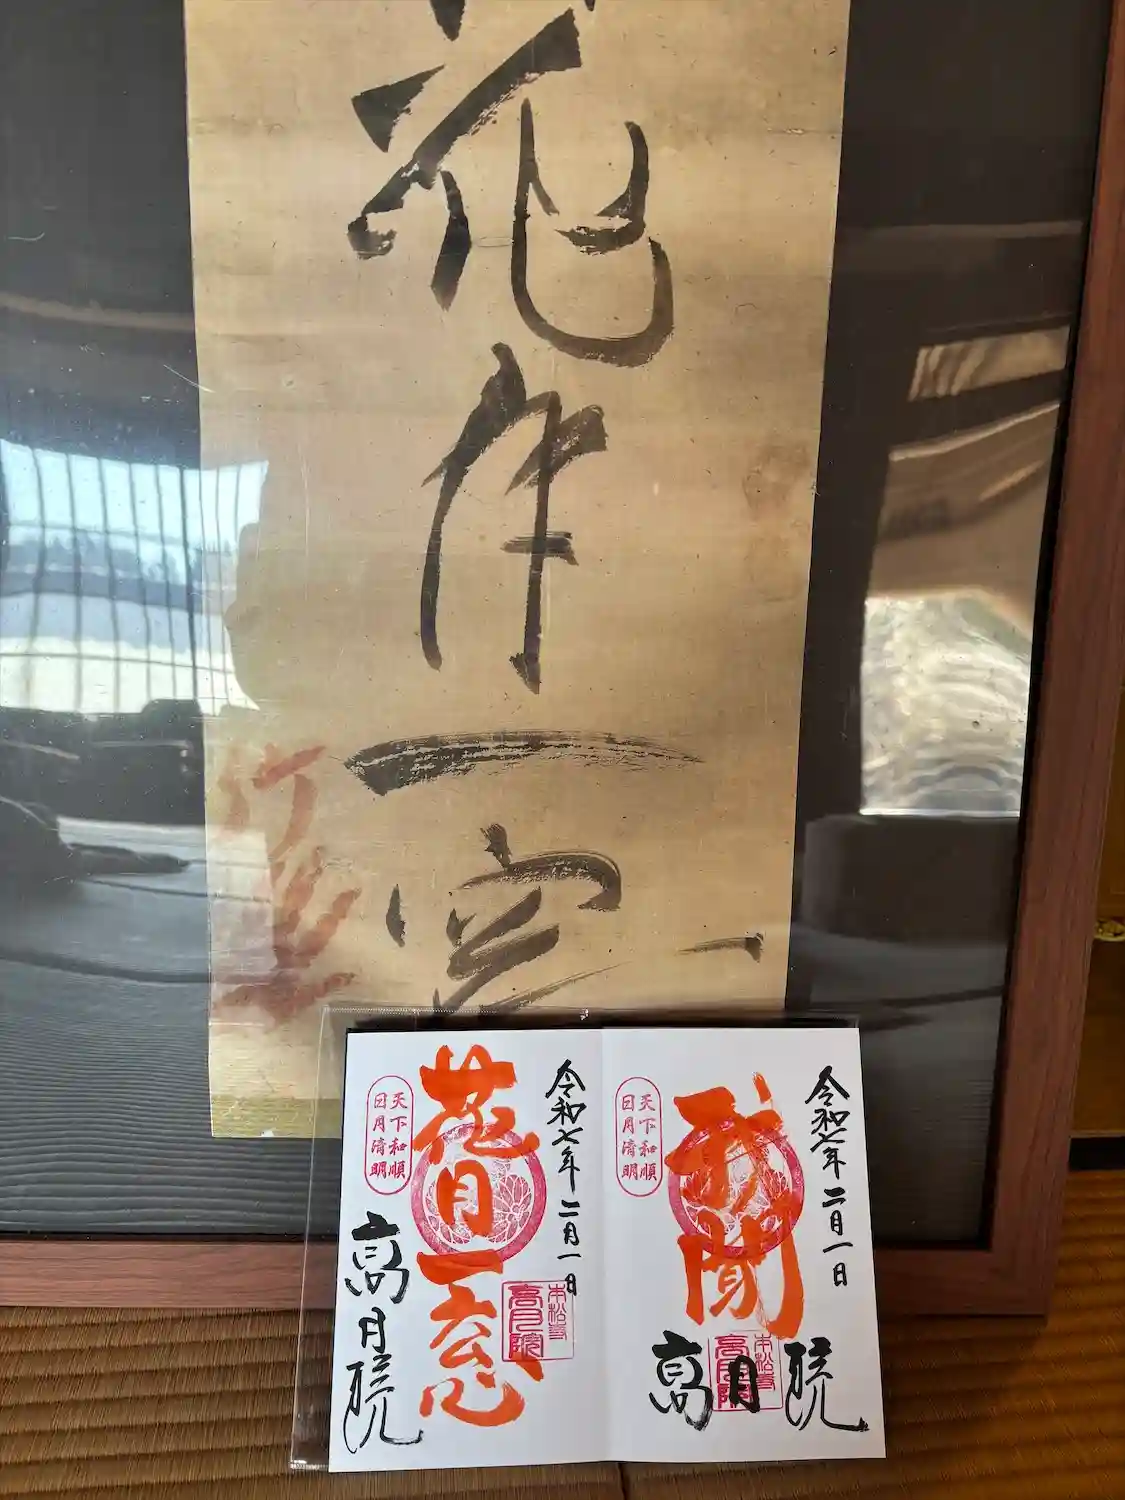 花
一
令和七年二月一日
我聞
天下和順
日月清明
高月院
高月院
令和七年二月一日
花月一窓
天下和順
日月清明
高月院
高月院